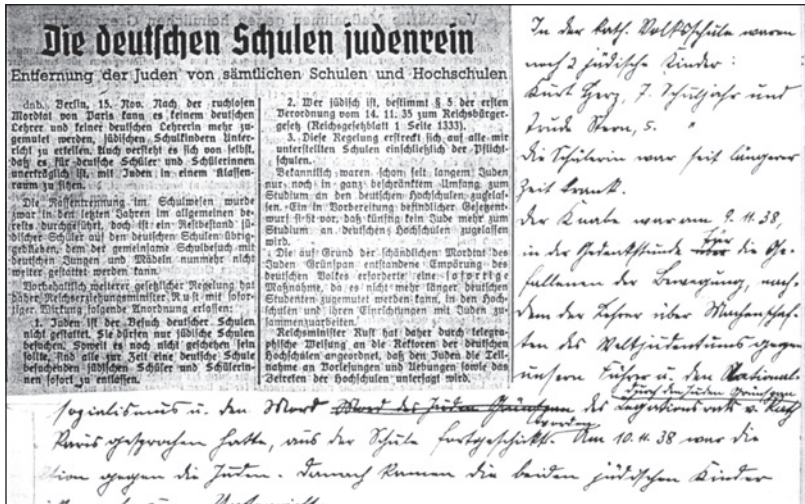 Die deutschen Schulen judenrein
Entfernung der Juden von sämtlichen Schulen und Hochschulen
dnb. Berlin, 15. Nov. Nach der ruchlosen
Mordtat von Paris kann es keinem deutschen
Lehrer und keiner deutschen Lehrerin mehr zu-
gemutet werden, jüdischen Schulkindern Unter-
richt zu erteilen. Auch versteht es sich von selbst,
daß es für deutsche Schüler und Schülerinnen
unerträglich ist, mit Juden in einem Klassen-
raum zu sitzen.
Die Rassentrennung im Schulwesen wurde
zwar in den letzten Jahren im allgemeinen be-
reits durchgeführt, doch ist ein Restbestand jü-
discher Schüler auf den deutschen Schulen übrig-
geblieben, dem der gemeinsame Schulbesuch mit
deutschen Jungen und Mädeln nunmehr nicht
weiter gestattet werden kann.
Vorbehaltlich weiterer gesetzlicher Regelung hat
daher Reichserziehungsminister Rust mit sofor-
tiger Wirkung folgende Anordnung erlassen:
1. Juden ist der Besuch deutscher Schulen
nicht gestattet. Sie dürfen nur jüdische Schulen
besuchen. Soweit es noch nicht geschehen sein
sollte, sind alle zur Zeit eine deutsche Schule
besuchenden jüdischen Schüler und Schülerin-
nen sofort zu entlassen.
2. Wer jüdisch ist, bestimmt § 5 der ersten
Verordnung vom 14. 11. 35 zum Reichsbürger-
gesetz (Reichsgesetzblatt 1 Seite 1333).
3. Diese Regelung erstreckt sich auf alle mir
unterstellten Schulen einschließlich der Pflicht-
schulen.
Bekanntlich waren schon seit langem Juden
nur noch in ganz beschränktem Umfang zum
Studium an den deutschen Hochschulen zugelas-
sen. Ein in Vorbereitung befindlicher Gesetzent-
wurf sieht vor, daß künftig kein Jude mehr zum
Studium an deutschen Hochschulen zugelassen
wird.
Die auf Grund der schändlichen Mordtat des
Juden Grünspan entstandene Empörung des
deutschen Volkes erforderte eine sofortige
Maßnahme, da es nicht mehr länger deutschen
Studenten zugemutet werden kann, in den Hoch-
schulen und ihren Einrichtungen mit Juden zu-
sammenzuarbeiten.
Reichsminister Rust hat daher durch telegra-
phische Weisung an die Rektoren der deutschen
Hochschulen angeordnet, daß den Juden die Teil-
nahme an Vorlesungen und Uebungen sowie das
Betreten der Hochschulen untersagt wird.
In der kath. Volksschule waren
noch 2 jüdische Kinder:
Kurt Herz, 7. Schuljahr und
Trude Stern, 5. "
Die Schülerin war seit längerer
Zeit krank.
Der Knabe war am 9. 11. 38,
in der Gedenkstunde für die Ge-
fallenen der Bewegung, nach-
dem der Lehrer über Machenschaf-
ten des Weltjudentums gegen
unsern Führer u. den National-
sozialismus u. den Mord Mord des Juden Grünspan des Legationsrats v. Rath
durch den Juden Grünspan
Paris gesprochen hatte, aus der Schule fortgeschickt worden. Am 10. 11. 38 war die
gegen die Juden. Danach kamen die beiden jüdischen Kinder
Unterricht.